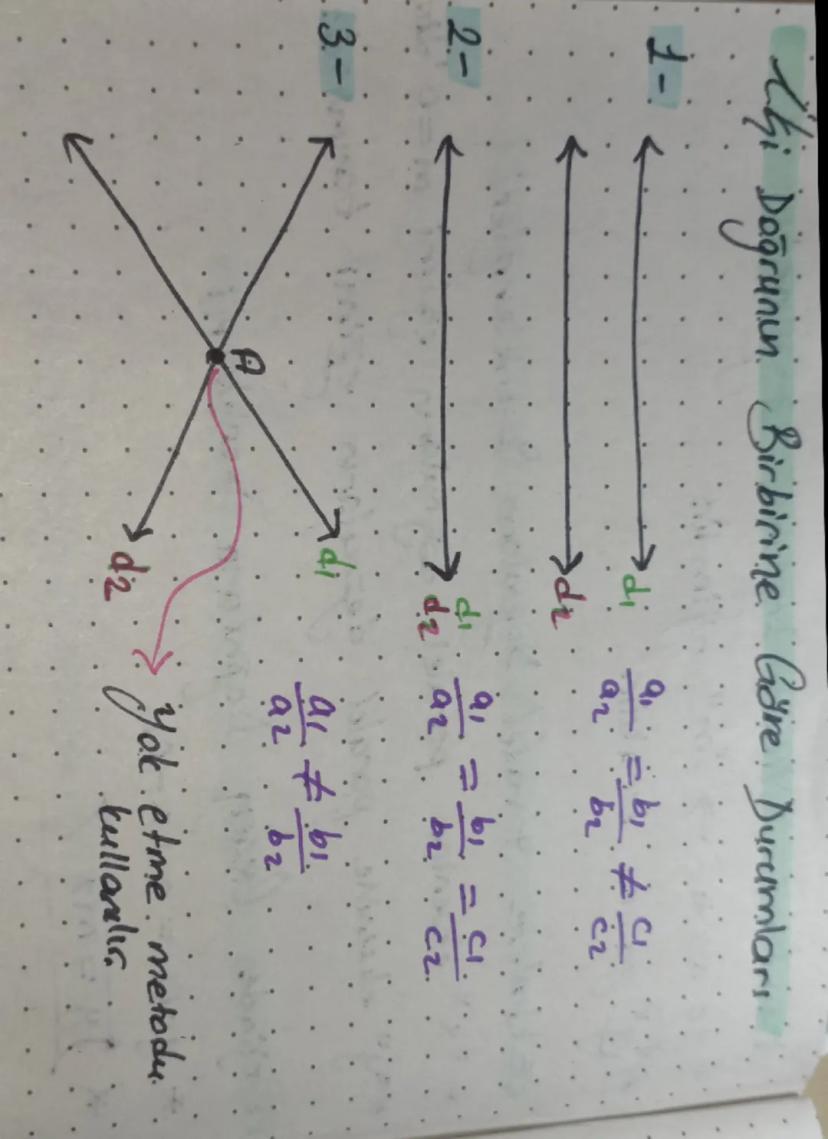 İki Doğrunun Birbirine Göre Durumları
1-
d1
d2
a1/a2 = b1/b2 ≠ c1/c2
2-
d1
d2
a1/a2 = b1/b2 = c1/c2
3-
A
d1
d2
a1/a2 ≠ b1/b2
Yok etme metodu
kullanılır.